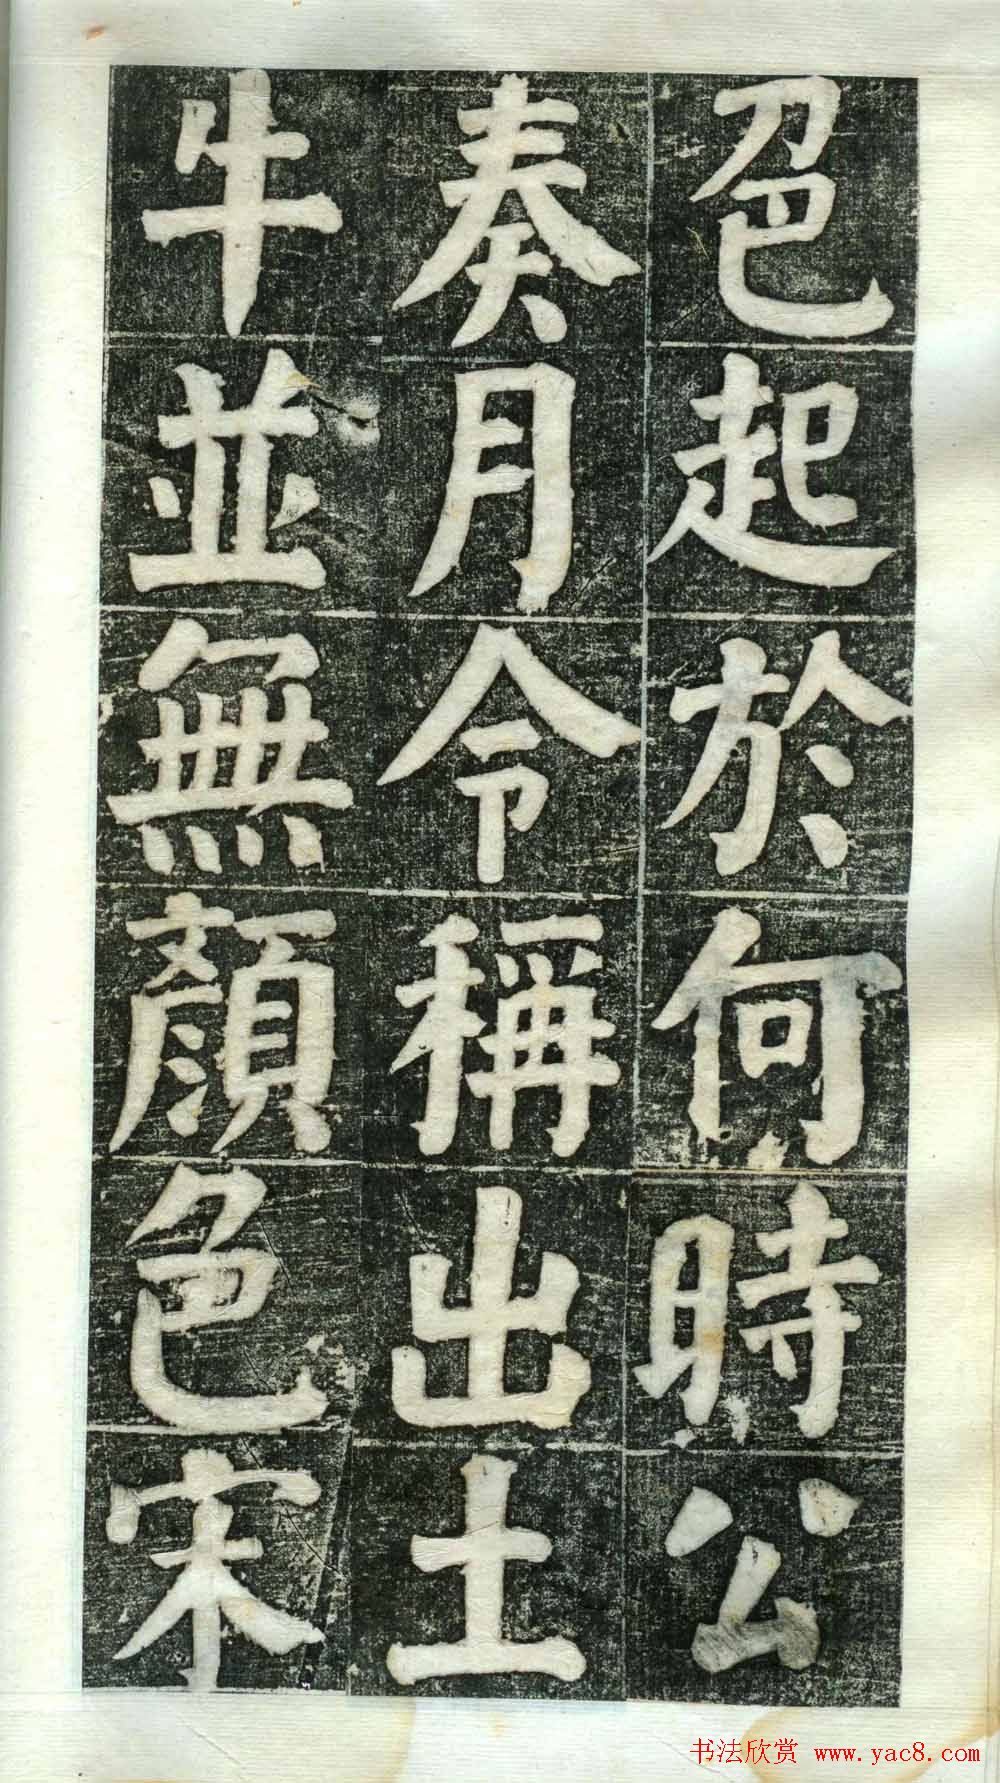 色起於何時公
奏月令稱出土
牛並無顏色宋
书法欣赏 www.yac8.com